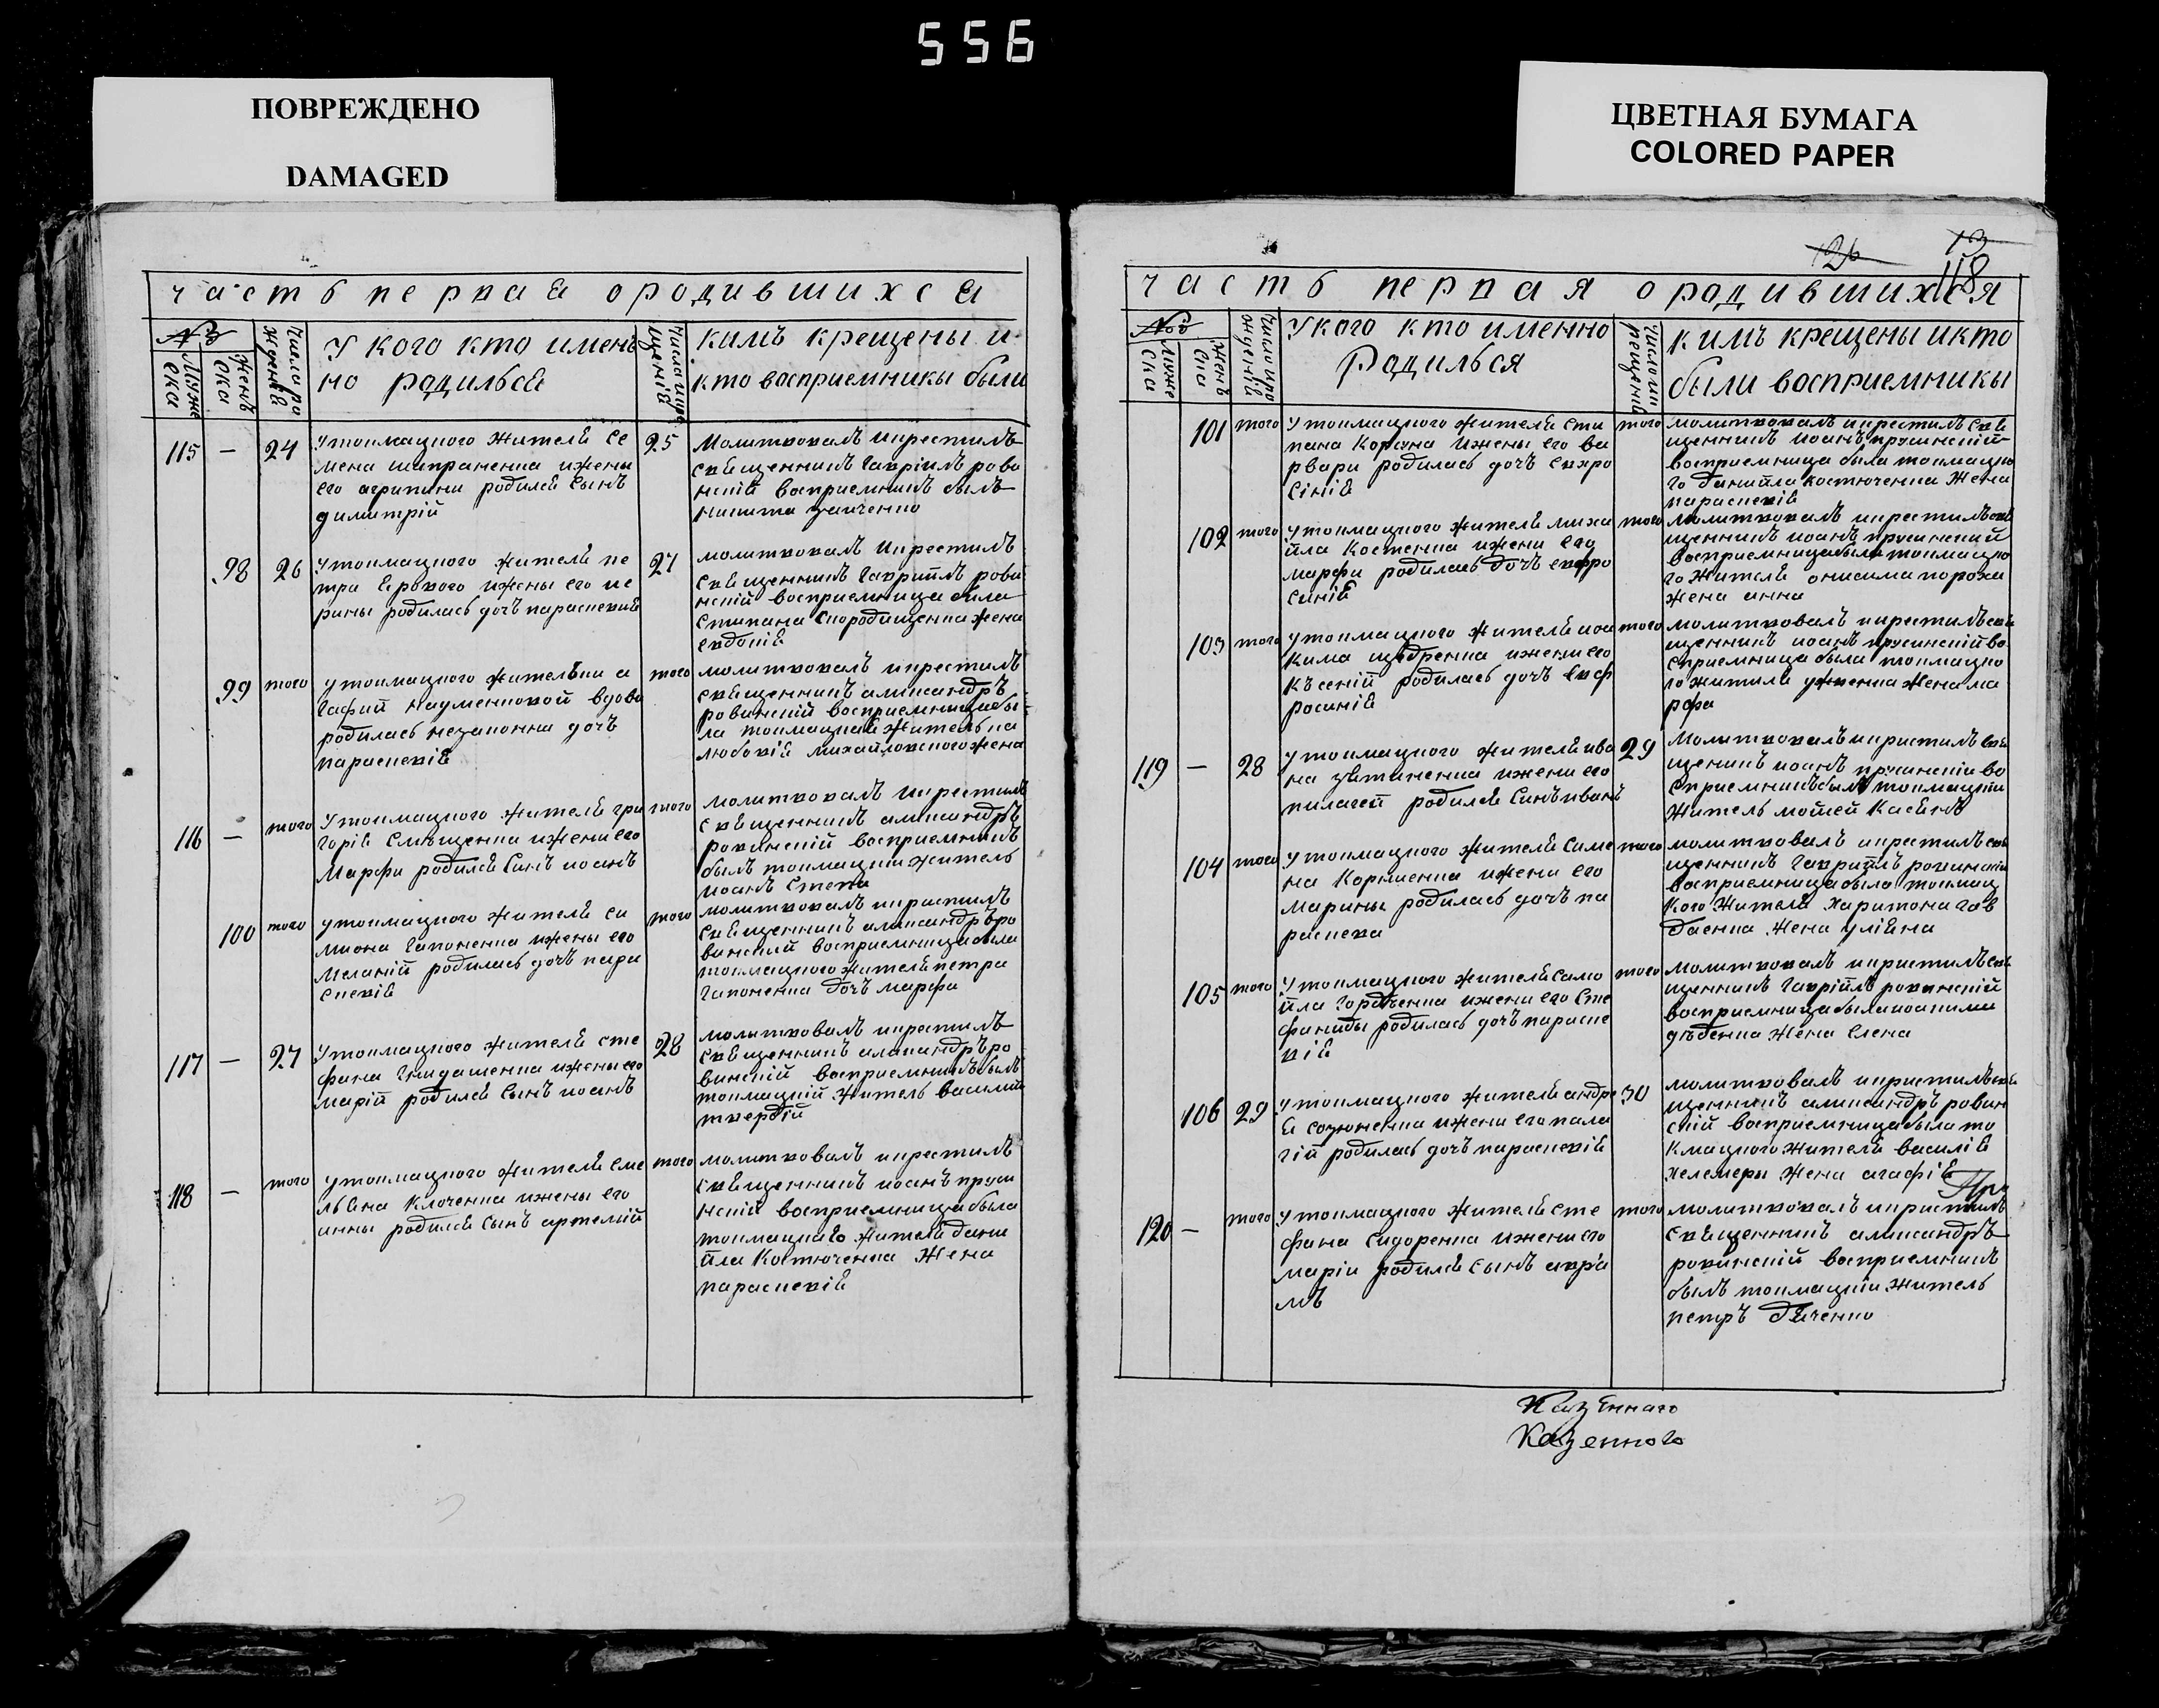 556
ПОВРЕЖДЕНО
DAMAGED
ЦВЕТНАЯ БУМАГА
COLORED PAPER
часть первая ородившихся
№
Муже
ска
Женъ
ска
Число ро
жденія
У кого кто имен
но родилься
кимъ крещены и
кто восприемники были
115 — 24
утокмацкого жителя се
мена шапраненка ижены
его агрипини родился сынъ
димитрій
25
Молитвовалъ икрестилъ
священникъ гавріилъ рови
нскій восприемникъ былъ
никита
98 26
утокмацкого жителя пе
тра ярового ижены его ис
рины родилась дочъ параскевия
27
молитвовалъ икрестилъ
священникъ гавриилъ рови
нскій восприемница была
степана жена
евдокія
99 того
утокмацкого жителки а
гафии науменковой вдови
родилась незаконна дочъ
параскевія
того
молитвовалъ икрестилъ
священникъ александръ
ровинскій восприемница бы
ла токмацкая жителька
любовія михайловского жена
116 — того
утокмацкого жителя гри
горія ижени его
Марфи родился синъ иоанъ
того
молитвовалъ икрестилъ
священникъ александръ
ровинскій восприемникъ
былъ токмацкіи житель
иоанъ
100 того
утокмацкого жителя си
миона гапоненка ижены его
меланій родилась дочъ пара
скевія
того
молитвовалъ икрестилъ
священникъ александръ ро
винскій восприемница была
токмацкого жителя петра
гапоненка дочъ марфа
117 — 27
утокмацкого жителя сте
фана ижены его
марій родился сынъ иоанъ
28
молитвовалъ икрестилъ
священникъ александръ ро
винскій восприемникъ былъ
токмацкій житель василий
твердій
118 — того
утокмацкого жителя еме
льяна Клоченка ижены его
анны родился сынъ артемій
того
молитвовалъ икрестилъ
священникъ иоанъ прусин
нскій восприемница была
токмацкаго жителя дани
йла Костюченка Жена
параскевія
126
13
118
часть первая ородившихся
№
Муже
ска
женъ
ска
Число ро
жденія
Укого кто именно
Родилься
кимъ крещены икто
были восприемники
101 того
утокмацкого жителя сти
пана Коржа ижены его ва
рвари родилась дочъ евфро
сінія
того
молитвовалъ икрестилъ свя
щенникъ иоанъ прусинскій
восприемница была токмацко
го данийла костюченка Жена
параскевія
102 того
утокмацкого жителя миха
йла Костенка ижени его
марфи родилась дочъ евфро
синія
того
молитвовалъ икрестилъ свя
щенникъ иоанъ прусинский
восприемница была токмацко
го жителя онисима порохи
жена анна
103 того
утокмацкого жителя иоа
кима щедренка ижени его
Къ сеній родилась дочъ евф
росинія
того
молитвовалъ икрестилъ свя
щенникъ иоанъ прусинскій во
сприемница была токмацко
го жителя жена ма
рфа
119 — 28
утокмацкого жителя ива
на ижени его
пилагеи родился Синъ иванъ
29
Молитвовалъ икристилъ свя
щеникъ иоанъ прусинскіи во
сприемникъ былъ токмацкіи
житель мойсей Касянъ
104 того
утокмацкого жителя симе
на Корниенка ижени его
Марины родилась дочъ па
раскева
того
молитвовалъ икрестилъ свя
щенникъ гавриилъ ровинскіи
восприемница была токмац
кого жителя харитона гав
жена уліяна
105 того
утокмацкого жителя само
йла гордѣенка ижени его сте
фаниды родилась дочъ параске
вія
того
Молитвовалъ икристилъ свя
щенникъ гаврійлъ ровинскій
восприемница была иоакима
дѣденка жена елена
106 29
утокмацкого жителя андре
я созоненка ижени его пала
гій родилась дочъ параскевія
30
молитвовалъ икристилъ свя
щенникъ александръ ровин
скій восприемница была то
кмацкого жителя василія
жена агафія
120 — того
утокмацкого жителя сте
фана Сидоренка ижени его
маріи родился сынъ авра
мъ
того
молитвовалъ икристилъ
священникъ александръ
ровинскій восприемникъ
былъ токмацкіи житель
петръ дяченко
Казеннаго
Казенного